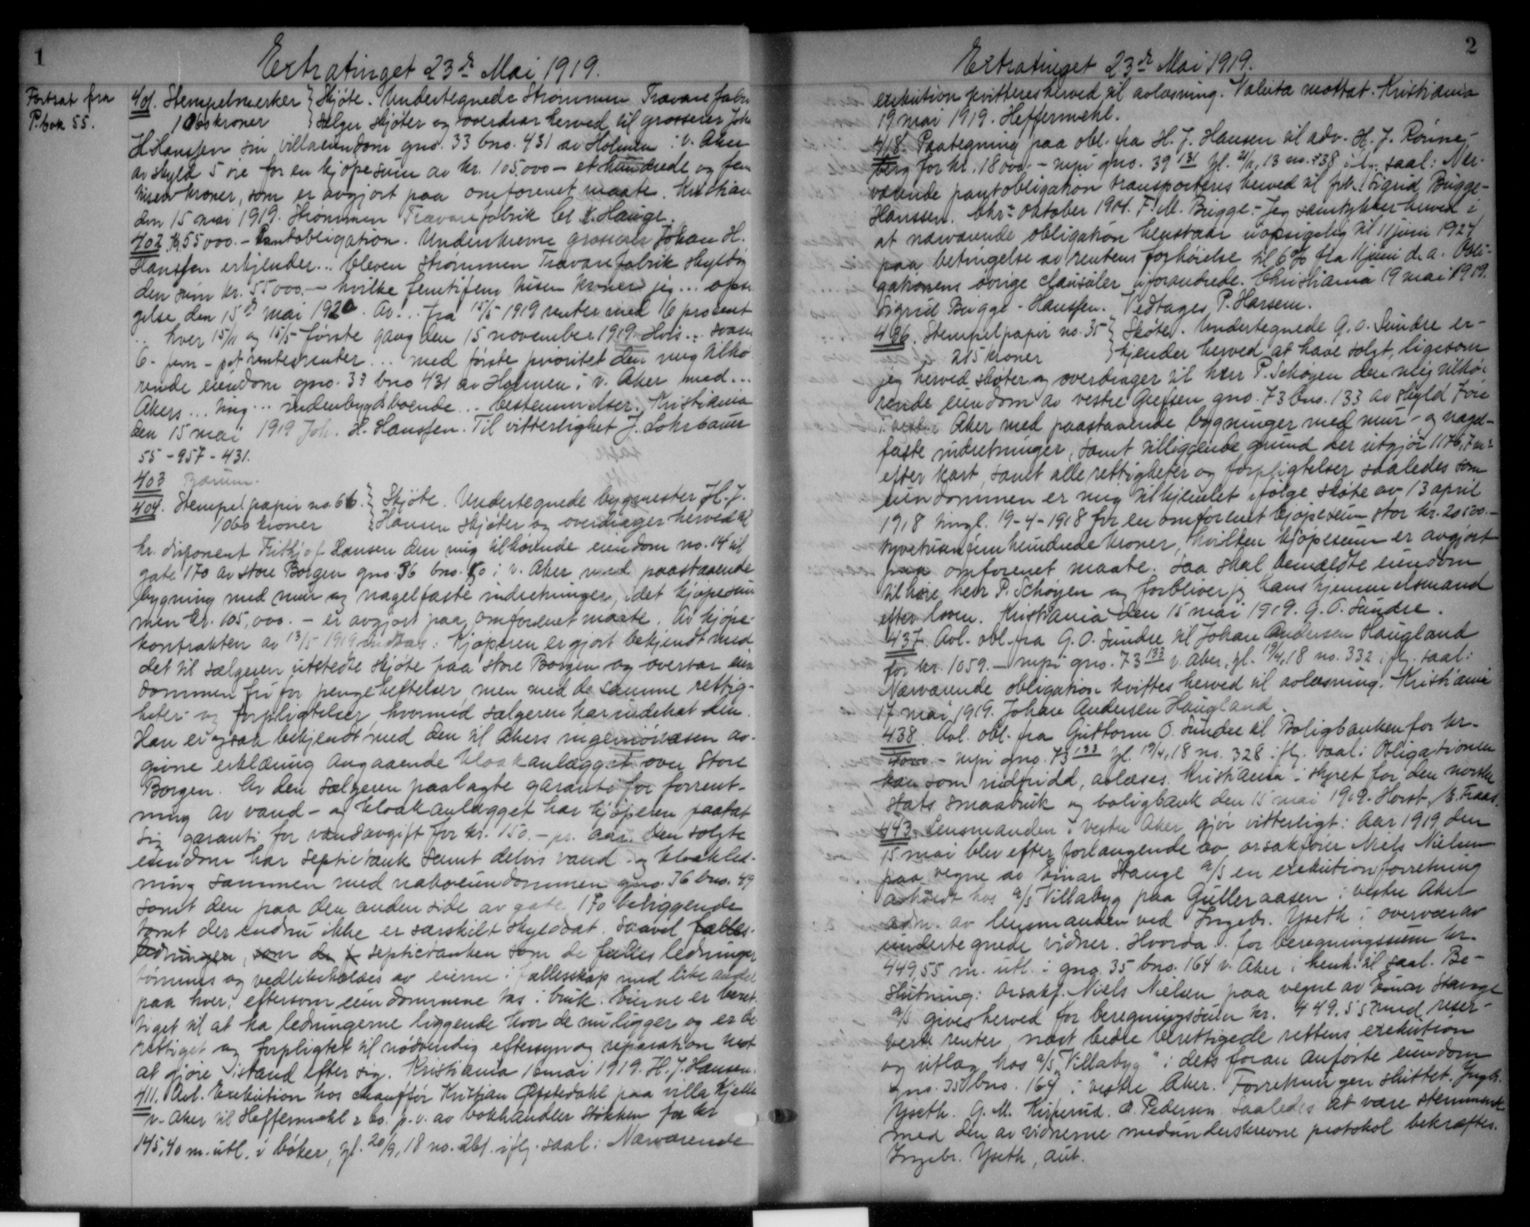 1
Extratinget 23de Mai 1919.
Fortsat fra
P.bok 55.
401. Stempelmerker } Skjøte. Undertegnede Strømmen Trævarefabrik
1060 kroner } sælger skjøter og overdrar herved til grosserer Joh.
H. Hanssen sin villaeiendom gno. 33 bno. 431 av Holmen i v. Aker
av skyld 5 øre for en kjøpesum av kr. 105,000 - et hundrede og fem
tusen kroner, som er avgjort paa omforenet maate. Kristiania
den 15 mai 1919. Strømmen Trævarefabrik K. Hauge.
402 Kr. 55000.- Pantobligation. Underskrevne grosserer Johan H.
Hanssen erkjender... bleven Strømmen Trævarefabrik skyldig
den sum kr. 55000.- hvilke femtifem tusen kroner jeg... opsi
gelse den 15de mai 1920. Av... fra 15/5 1919 renter med 6 procent
.. hver 15/11 og 15/5 første gang den 15 november 1919. Hvis... svare
6.- rentesrenter... med første prioritet den mig tilhø
rende eiendom gno. 33 bno 431 av Holmen i v. Aker med...
Akers... ting... indenbygdsboende... bestemmelser. Kristiania
den 15 mai 1919 Joh. H. Hanssen. Til vitterlighet J. Lohrbauer
55 - 957 - 431.
403 Bærum.
404. Stempelpapir no 66. } Skjøte. Undertegnede bygmester H. J.
1060 kroner } Hansen skjøter og overdrager herved til
hr. disponent Fritjof Hansen den mig tilhørende eiendom no. 14 til
gate 170 av store Borgen gno 36 bno. 80 i v. Aker med paastaaende
bygning med mur og nagelfaste indretninger, idet kjøpesum
men kr. 105,000.- er avgjort paa omforenet maate. Av kjøpe-
kontrakten av 13/5 1919 : Kjøperen er gjort bekjendt med
det til sælgeren utstedte skjøte paa store Borgen og overtar eien
dommen fri for pengeheftelser men med de samme rettig-
heter og forpligtelser hvormed sælgeren har indehat den.
Han er ogsaa bekjendt med den til Akers ingeniørvæsen av-
givne erklæring angaaende kloakanlægget over Store
Borgen. Av den sælgeren paalagte garanti for forrent-
ning av vand- og kloakanlægget har kjøperen paatat
sig garanti for vandavgift for kr. 150.- pr. aar. Den solgte
eiendom har septictank samt delvis vand- og kloakled-
ning sammen med naboeiendommen gno. 36 bno. 49
samt den paa den anden side av gate 170 beliggende
tomt der endnu ikke er særskilt skylddat. Saavel fælles-
ledningen, som de septictanken som de fælles ledninger
tømmes og vedlikeholdes av eierne i fællesskap med like andel
paa hver, eftersom eiendommene tas i bruk. Eierne er beret-
tiget til at ha ledningerne liggende hvor de nu ligger og er be
rettiget og forpligtet til nødvendig eftersyn og reparation mot
at gjøre istand efter sig. Kristiania 16 mai 1919. H. J. Hansen.
411. Avl. Exekution hos chauffør Kristian Oftedahl paa villa Kjelle
v. Aker til Heffermehl & co. p.v. av bokhandler Stokken for kr
145,40 m. utl. i bøker, gl. 20/9, 18 no. 261. iflg. saal: Nærværende
2
Extratinget 23de Mai 1919.
exekution kvitteres herved til avlæsning. Valuta mottat. Kristiania
19 mai 1919. Heffermehl.
418. Paategning paa obl. fra H. J. Hansen til adv. H. J. Rønne-
berg for kr. 18 000.- mpi gno. 39 131 gl. 21/11, 13 no. 738 i saal: Nær-
værende pantobligation transporteres herved til frk. Sigrid Brigge-
Hanssen. Chr: oktober 1914. F. M. Brigge.- Jeg samtykker herved i
at nærværende obligation henstaar uopsigelig til 11 juni 1927
paa betingelse av rentens forhøielse til 6% fra 11 juni d.a. Obli-
gationens øvrige clausuler uforandrede. Christiania 19 mai 1919.
Sigrid Brigge-Hanssen. Vedtages P. Hansen.
436. Stempelpapir no. 35 } Skøte. Undertegnede G. O. Sundre er-
215 kroner } kjender herved at have solgt, ligesom
jeg herved skøter og overdrager til herr P. Schøyen den mig tilhø-
rende eiendom av vestre Grefsen gno. 73 bno. 133 av skyld 7 øre
i vestre Aker med paastaaende bygninger med mur- og nagel-
faste indretninger, samt tilliggende grund der utgjør 1176,7 m2
efter kart, samt alle rettigheter og forpligtelser saaledes som
eiendommen er mig tilhjemlet ifølge skøte av 13 april
1918 tingl. 19-4-1918 for en omforenet kjøpesum stor kr. 20500.-
tyvetusenfemhundrede kroner, hvilken kjøpesum er avgjort
paa omforenet maate. Saa skal bemældte eiendom
tilhøre herr P. Schøyen og forbliver jeg hans hjemmelsmand
efter loven. Kristiania den 15 mai 1919. G. O. Sundre.
437. Avl. obl. fra G. O. Sundre til Johan Andersen Haugland
for kr. 1059.- mpi gno. 73 133 v. Aker, gl. 19/4, 18 no. 332 iflg. saal:
Nærværende obligation kvittes herved til avlæsning. Kristiania
17 mai 1919. Johan Andersen Haugland.
438. Avl. obl. fra Guttorm O. Sundre til Boligbanken for kr.
4000.- mpi gno. 73 133 gl. 19/4, 18 no. 328 iflg. saal: Obligationen
kan som indfridd, avlæses. Kristiania - styret for den norske
stats smaabruk og boligbank den 15 mai 1919. Horst. /E. Traas.
443. Lensmanden i vestre Aker gjør vitterligt: Aar 1919 den
15 mai blev efter forlangende av orsakfører Niels Nielsen
paa vegne av Einar Stange a/s en exekutionsforretning
avholdt hos a/s Villabyg paa Gulleraasen i vestre Aker
adm. av lensmanden ved Ingebr. Yseth i overvær av
undertegnede vidner. Hvorda. for beregningssum kr.
449,55 m. utl. i gno. 35 bno. 164 v. Aker i henh. til saal. Be-
slutning: Orsakf. Niels Nielsen paa vegne av Einar Stange
a/s gives herved for beregningssum kr. 449.55 med reser-
verte renter, næst bedre berettigede rettens exekution
og utlæg hos a/s "Villabyg" i det foran anførte eiendom
gno. 35 bno. 164 i vestre Aker. Forretningen sluttet. Ingebr.
Yseth. G. M. Kisperud. O. Pedersen. Saaledes at være stemmende
med den av vidnerne medunderskrevne protokol bekræftes.
Ingebr. Yseth, aut.